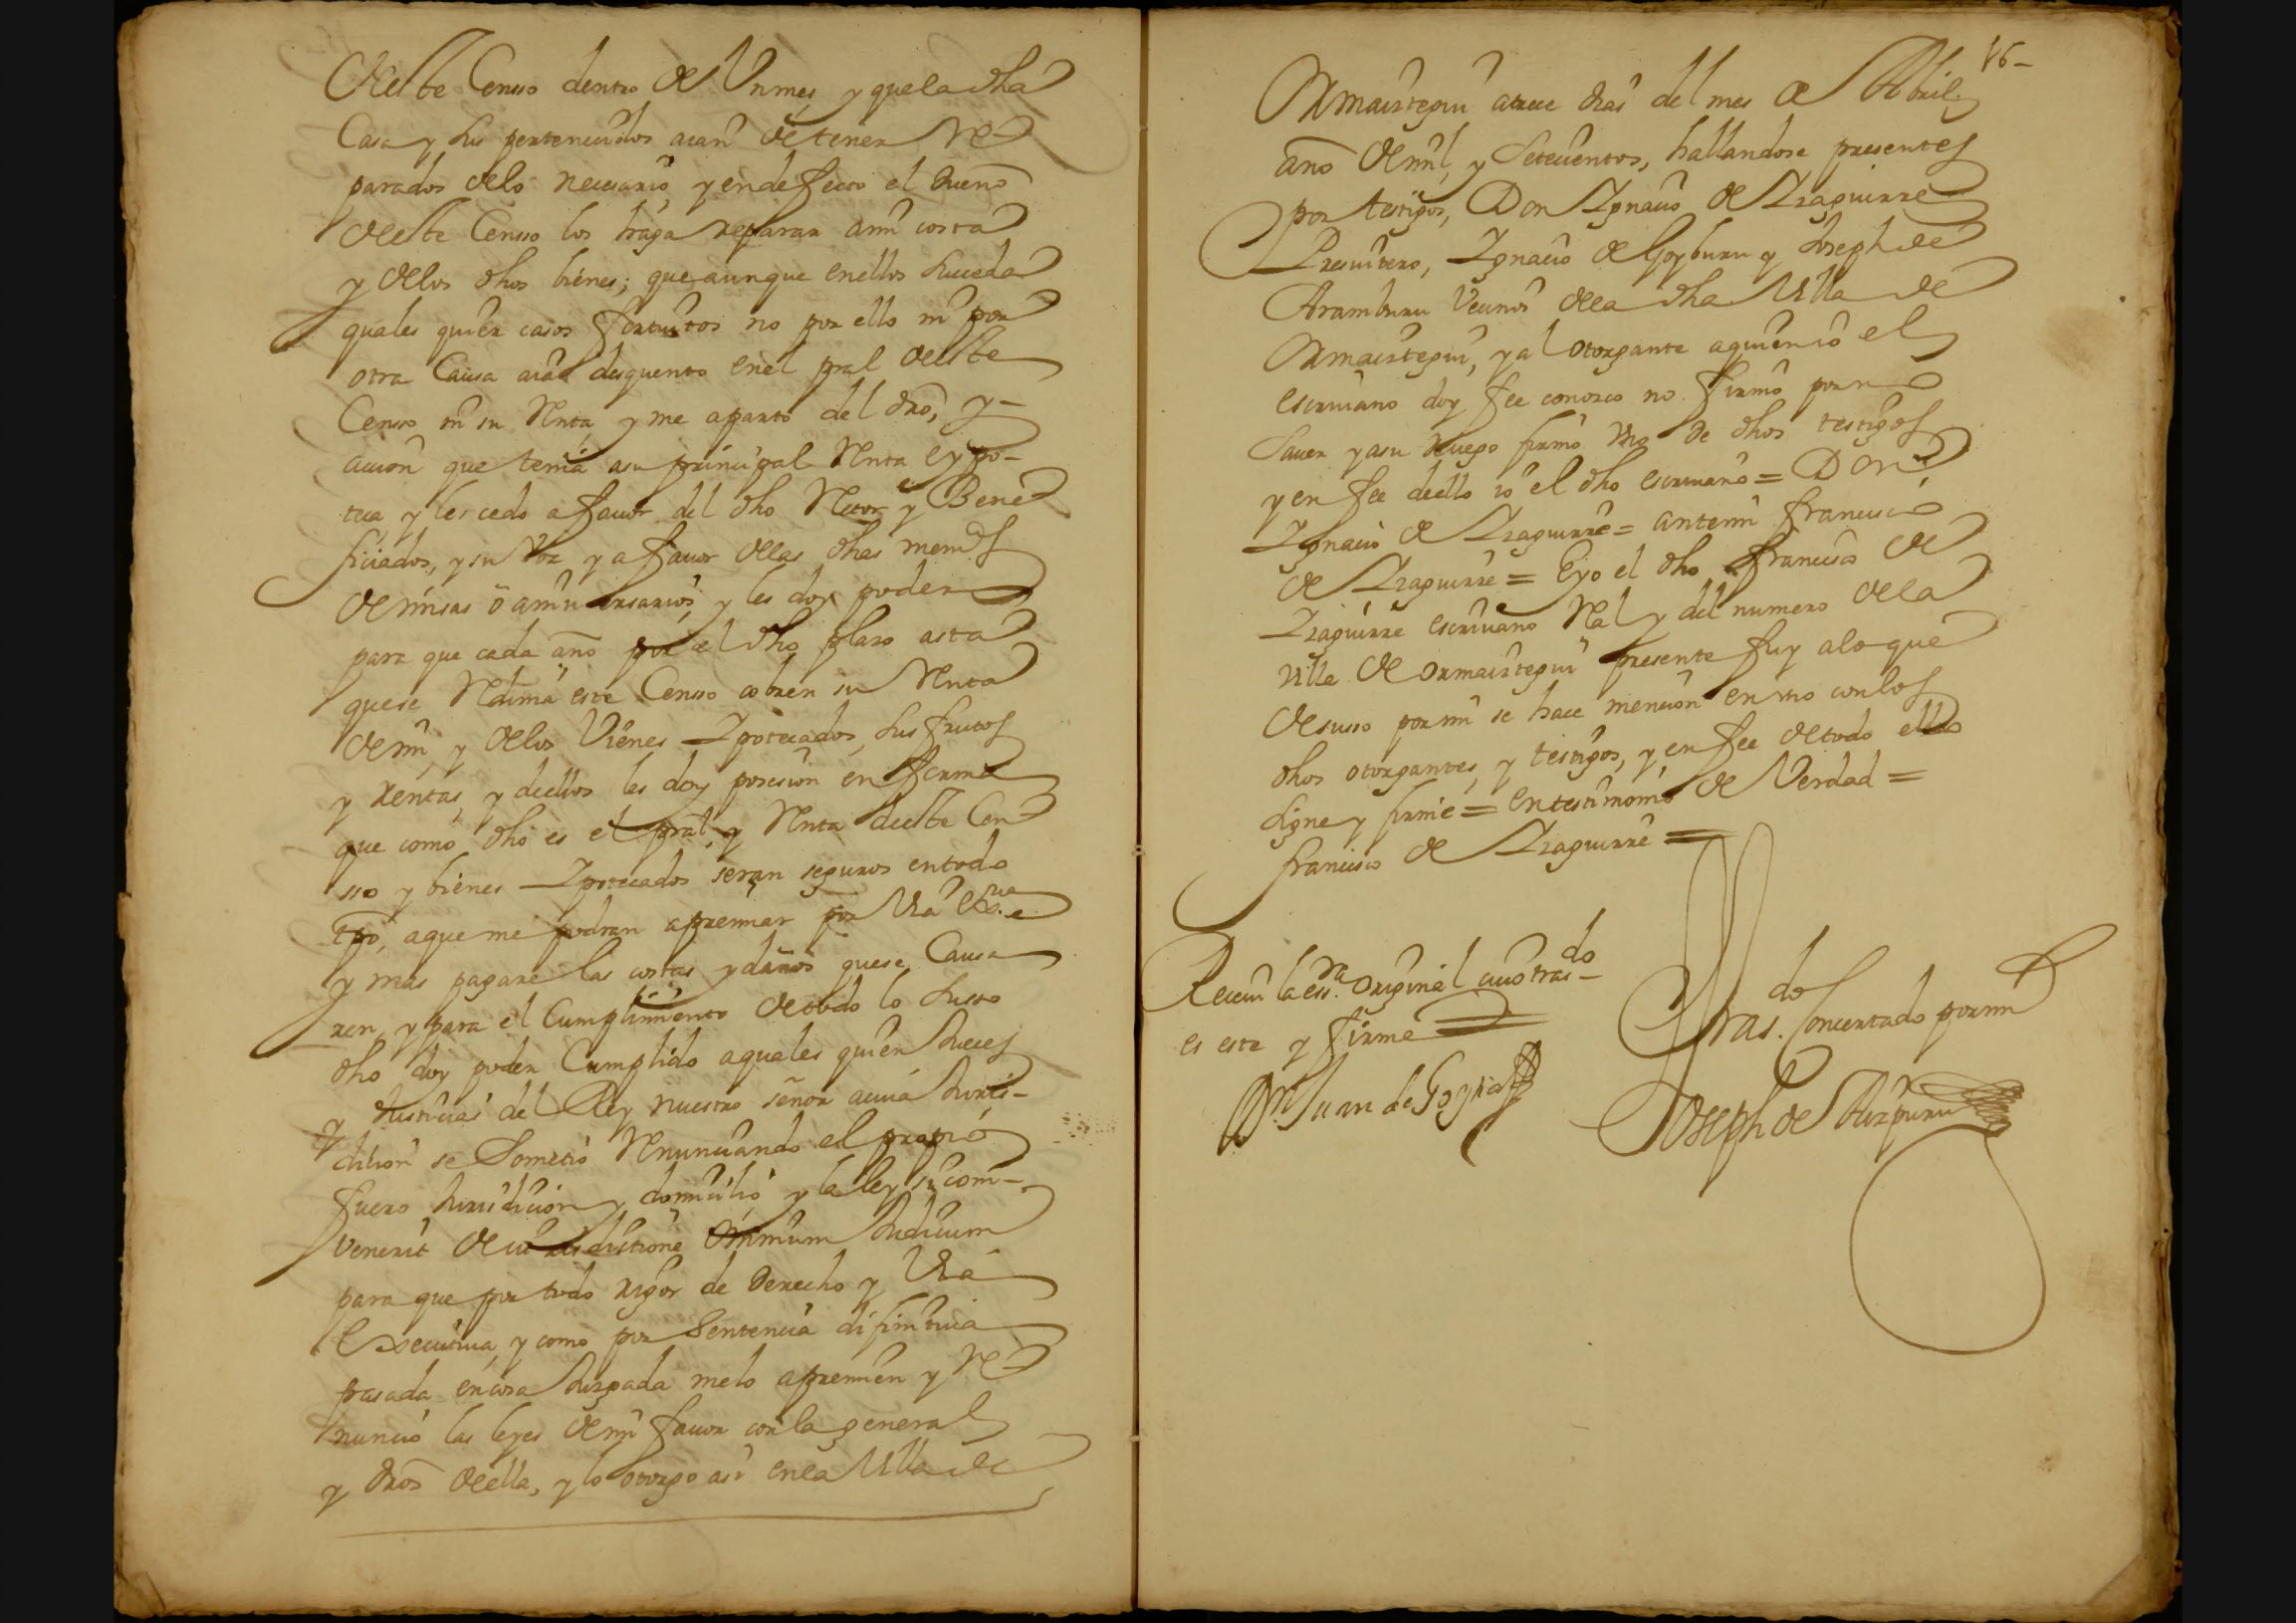 deeste Censso dentro de Vn mes, y que la dha
Casa y sus pertenecidos aian de tener Re-
parados delo necesario, y en defecto el dueno
deeste Censso los haga reparar a mi costa
y delos dhos bienes; que aunque en ellos suceda
quales quier casos fortuitos no por ello ni por
otra Causa aia desquento en el pral deeste
Censo ni su Renta y me aparto del dro, y-
accion que tenia a su principal Renta eypo-
teca, y les cedo a fauor del dho Rector y Bene-
ficiados, y su Voz y a fauor delas dhas mem.s
de misas ō aniuersarios, y les doy poder
para que cada año por el dho plaso asta
que se Redima este Censso cobren su Renta
de mi, y delos Vienes Ypotecados, sus frutos
y rentas, y dellos les doy posesion en forma
que como dho es el pral, y Renta deeste Cen-
sso y bienes Ypotecados seran seguros en todo
tpō, a que me podran apremiar por Via ex.ua e
y mas pagare las costas y daños que se Causa
ren, y para el Cumplimiento de todo lo susso
dho doy poder Cumplido a quales quier Jueces
y Justicias del Rey nuestro señor a cuia Juris-
dicion se Sometio Renunciando el propio
fuero Jurisdicion y domicilio y la ley si com-
venerit de iurisdictione omnium Judicum
para que por todo rigor de derecho y Via
executiua, y como por Sentencia difinitiua
pasada en cosa Jusgada me lo apremien y Re-
nuncio las leyes de mi fauor con la general
y dros de ella, y lo otorgo asi en la Villa de
16-
Ormaistegui a trece dias del mes de Abril
ano de mil, y Setecientos, hallandose presentes
por testigos, Don Ygnacio de Yraguirre
Presuitero, Ygnacio de Goyburu y Joseph de
Aramburu Vecinos dela dha Villa de
Ormaistegui, y al otorgante a quien io el
escriuano doy fee conosco no firmo por no
sauer y a su ruego firmo vno de dhos testigos
y en fee de ello io el dho escriuano = Don
Ygnacio de Yraguirre = ante mi Francisco
de Yraguirre = E yo el dho Francisco de
Yraguirre escriuano Ral y del numero dela
villa de ormaistegui presente fuy a lo que
de susso por mi se hace mencion en vno con los
dhos otorgantes, y testigos, y en fee de todo ello
signe y firme = en testimonio de Verdad =
francisco de Yraguirre =
Receui la ess.ra original cuio tras.do
es este y firme
Dn Juan de Goyria
Tras.do Concertado por mi
Joseph de Aizpuru